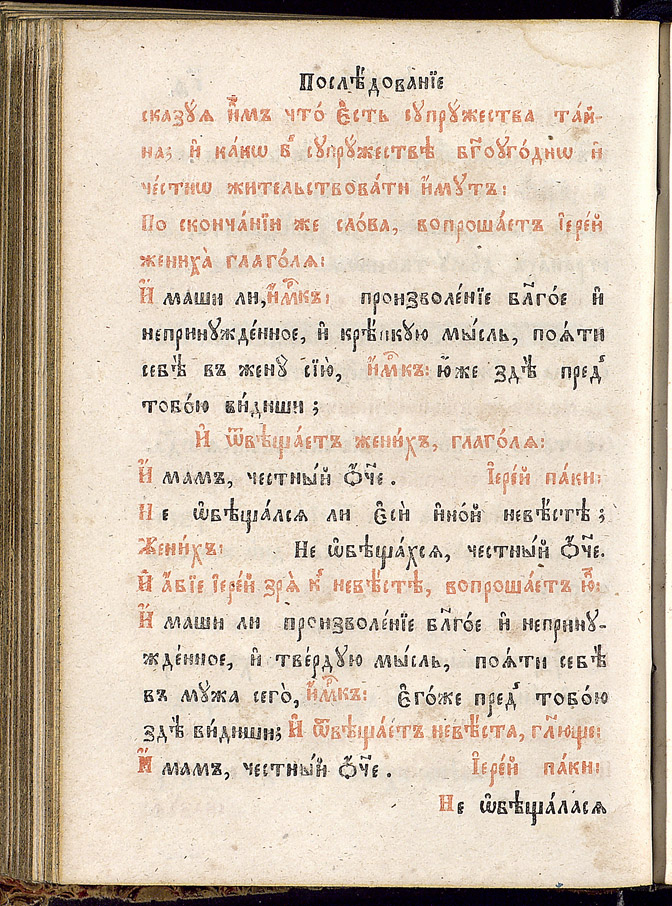 Послѣ́дованїе
сказꙋ́ѧ и҆̀мъ что̀ є҆́сть сꙋпрꙋ́жества та́й-
на; и҆ ка́кѡ в̾ сꙋпрꙋ́жествѣ бг҃оꙋго́днѡ и҆
че́стнѡ жи́тельствовати и҆́мꙋтъ:
По сконча́нїи же сло́ва, вопроша́етъ і҆ере́й
жениха̀ глаго́лѧ:
И҆́маши ли, и҆́мⷬ҇къ: произволе́нїе бл҃го́е и҆
непринꙋжде́нное, и҆ крѣ́пкꙋю мы́сль, поѧ́ти
себѣ̀ въ женꙋ̀ сїю̀, и҆́мⷬ҇къ: ю҆́же здѣ̀ пред̾
тобо́ю ви́диши;
И҆ ѿвѣща́етъ жени́хъ, глаго́лѧ:
И҆́мамъ, честны́й ѻ҆́ч҃е. І҆ере́й па́ки:
Не ѡ҆бѣща́лсѧ ли є҆сѝ и҆но́й невѣ́стѣ;
Жени́хъ: Не ѡ҆бѣща́хсѧ, честны́й ѻ҆́ч҃е.
И҆ а҆́бїе і҆ере́й зрѧ̀ к̾ невѣ́стѣ, вопроша́етъ ю҆̀:
И҆́маши ли произволе́нїе бл҃го́е и҆ непринꙋ-
жде́нное, и҆ тве́рдꙋю мы́сль, поѧ́ти себѣ̀
въ мꙋ́жа сего̀, и҆́мⷬ҇къ: є҆го́же пред̾ тобо́ю
здѣ̀ ви́диши; И҆ ѿвѣща́етъ невѣ́ста, гл҃юще:
И҆́мамъ, честны́й ѻ҆́ч҃е. І҆ере́й па́ки:
Не ѡ҆бѣща́ласѧ